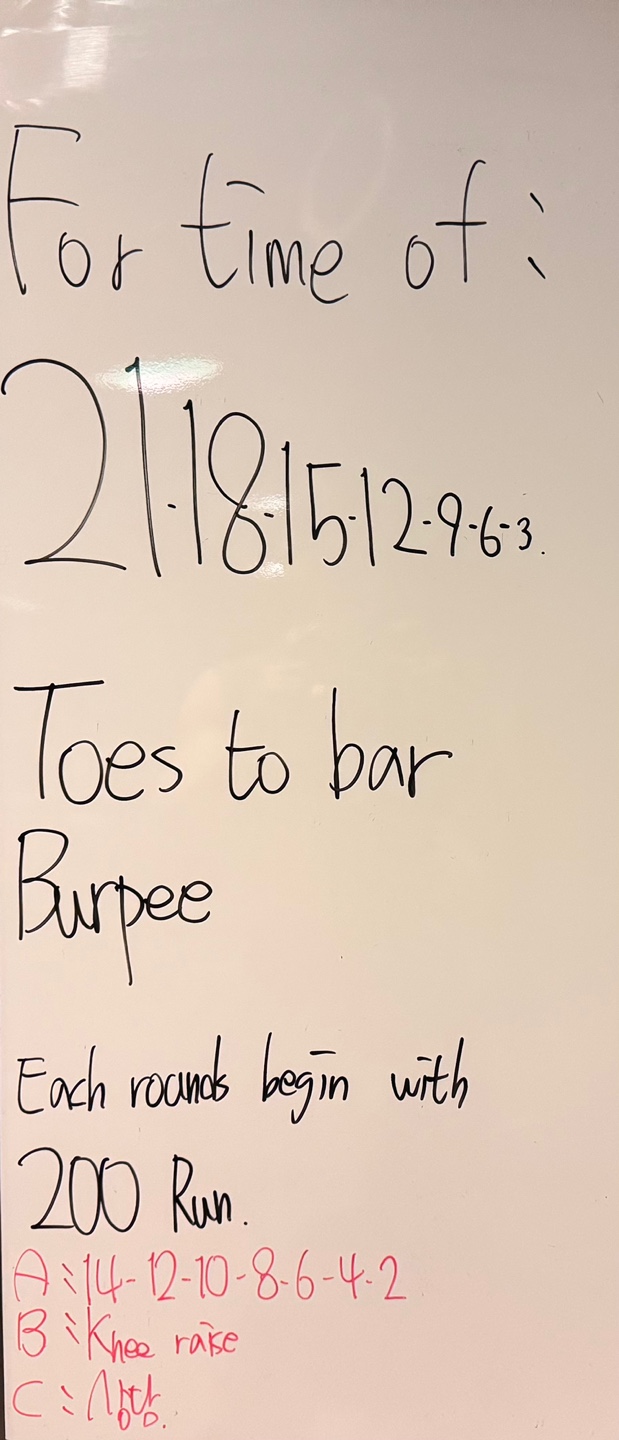 For time of :
21-18-15-12-9-6-3.
Toes to bar
Burpee
Each rounds begin with
200 Run.
A : 14-12-10-8-6-4-2
B : Knee raise
C : 상담.